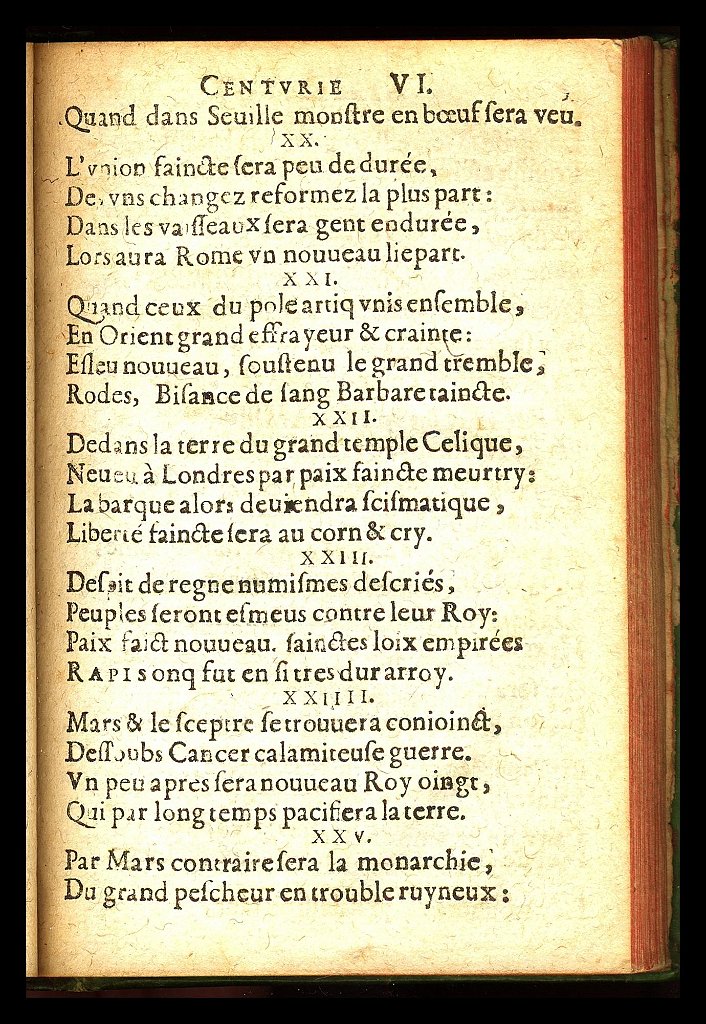 CENTVRIE VI.
Quand dans Seuille monſtre en bœuf ſera veu.
XX.
L'vnion faincte ſera peu de durée,
Des vns changez reformez la plus part:
Dans les vaiſſeaux ſera gent endurée,
Lors aura Rome vn nouueau liepart.
XXI.
Quand ceux du pole artiq vnis enſemble,
En Orient grand effrayeur & crainte:
Eſleu nouueau, ſouſtenu le grand tremble,
Rodes, Biſance de ſang Barbare taincte.
XXII.
Dedans la terre du grand temple Celique,
Neueu à Londres par paix faincte meurtry:
La barque alors deuiendra ſciſmatique,
Liberté faincte ſera au corn & cry.
XXIII.
Deſpit de regne numiſmes deſcriés,
Peuples ſeront eſmeus contre leur Roy:
Paix faict nouueau, ſainctes loix empirées
RAPIS onq fut en ſi tres dur arroy.
XXIIII.
Mars & le ſceptre ſe trouuera conioinct,
Deſſoubs Cancer calamiteuſe guerre.
Vn peu apres ſera nouueau Roy oingt,
Qui par long temps pacifiera la terre.
XXV.
Par Mars contraire ſera la monarchie,
Du grand peſcheur en trouble ruyneux: